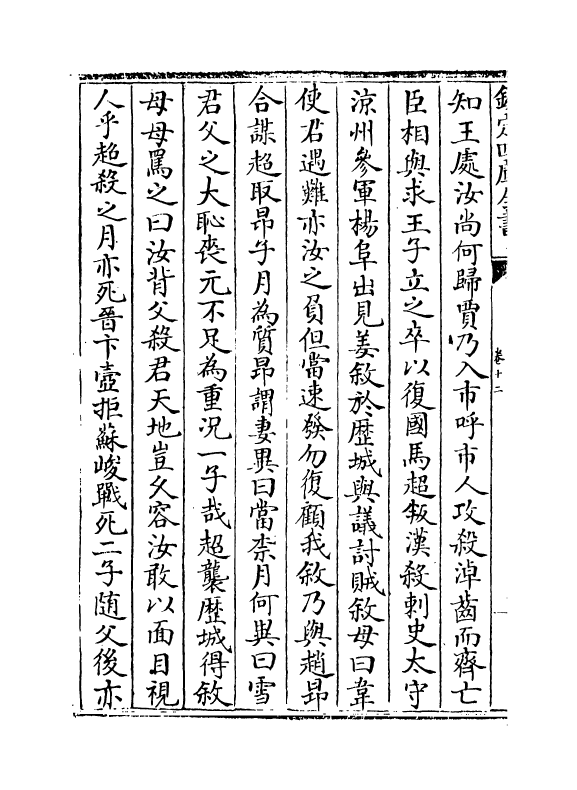 知王處汝尚何歸賈乃入市呼市人攻殺淖齒而齊亡
臣相與求王子立之卒以復國馬超叛漢殺刺史太守
涼州參軍楊阜出見姜敘於歴城與議討賊敘母曰韋
使君遇難亦汝之負但當速發勿復顧我敘乃與趙昂
合謀超取昂子月為質昂謂妻異曰當柰月何異曰雪
君父之大恥喪元不足為重況一子哉超襲歴城得敘
母母罵之曰汝背父殺君天地豈乆容汝敢以面目視
人乎超殺之月亦死晉卞壼拒蘇峻戰死二子隨父後亦
欽定四庫全書
卷十二